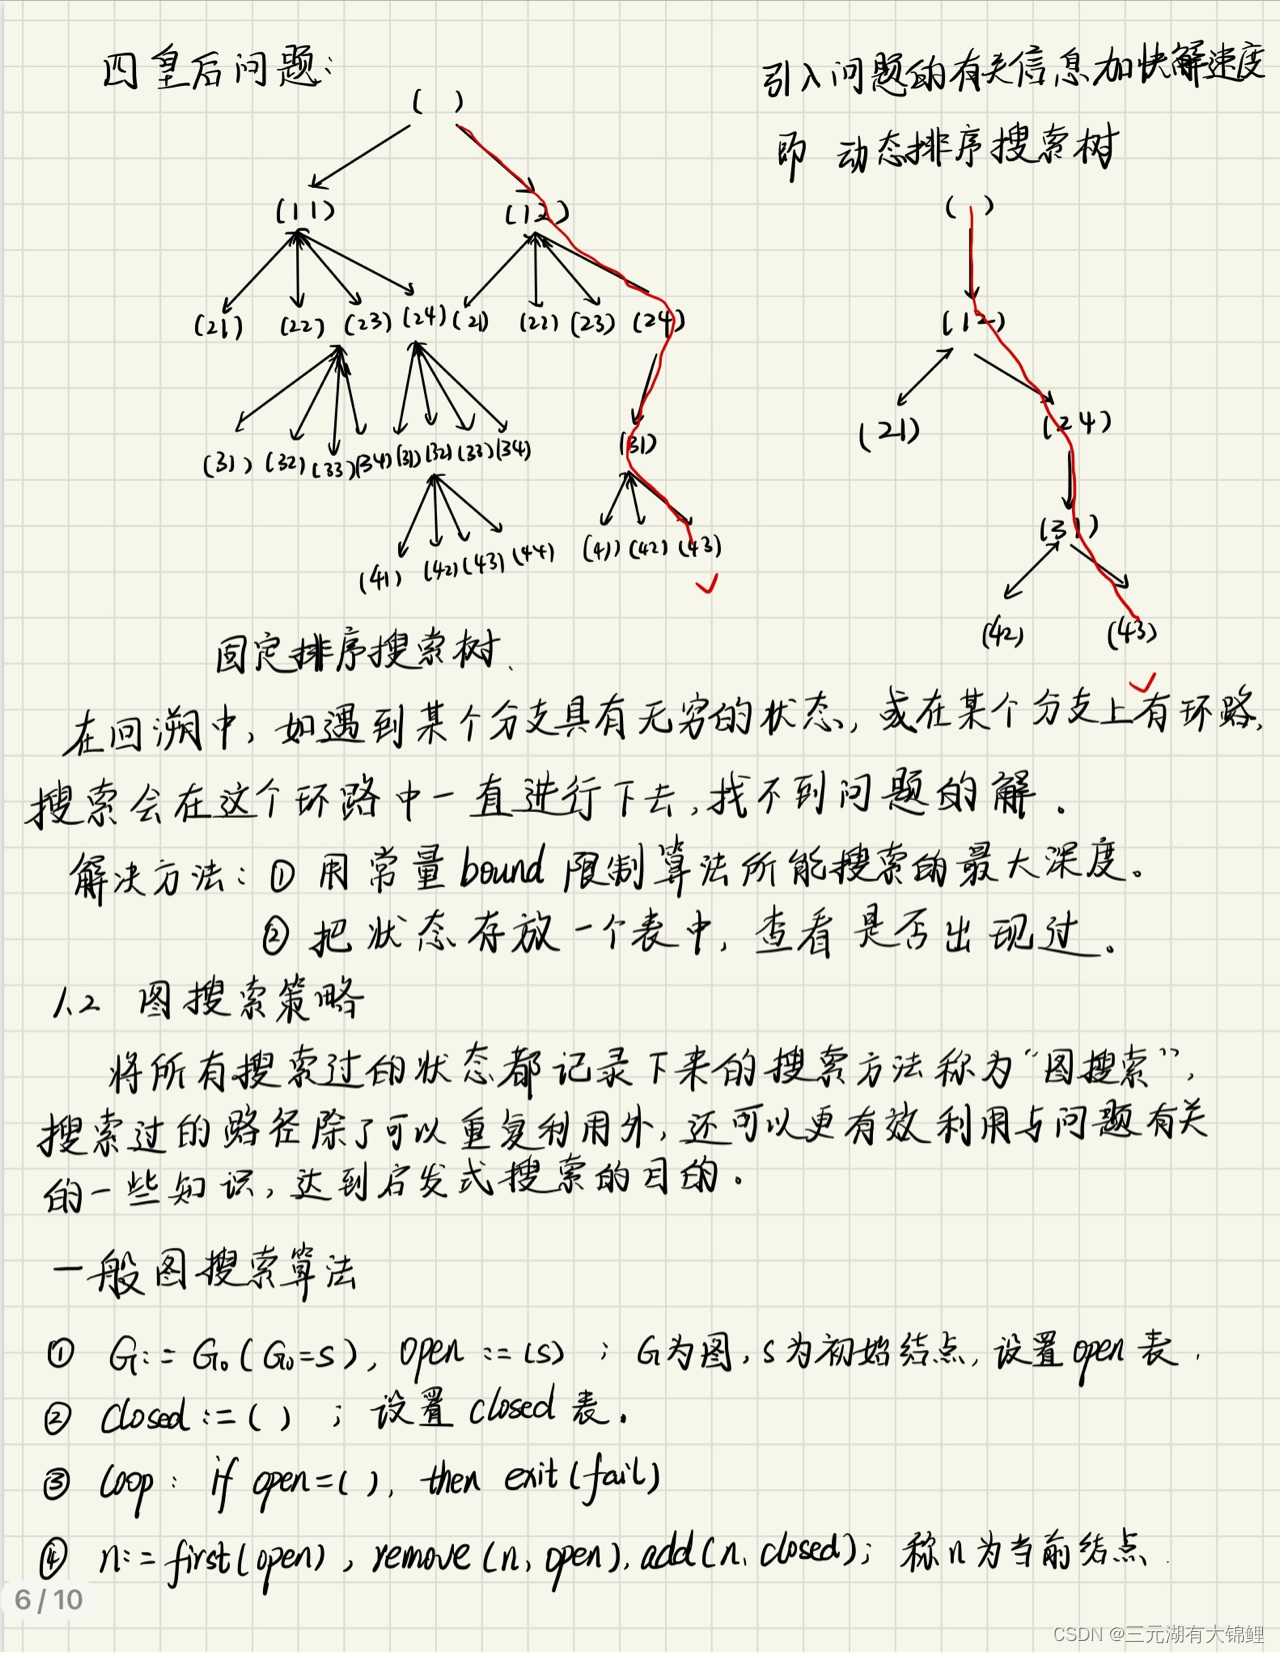 四皇后问题:
( )
(11) (12)
(21) (22) (23) (24) (21) (22) (23) (24)
(31) (32) (33) (34) (31) (32) (33) (34) (31)
(41) (42) (43) (44) (41) (42) (43)
固定排序搜索树.
引入问题的有关信息加快解速度
即 动态排序搜索树
( )
(12)
(21) (24)
(31)
(42) (43)
在回溯中,如遇到某个分支具有无穷的状态,或在某个分支上有环路,
搜索会在这个环路中一直进行下去,找不到问题的解。
解决方法:① 用常量 bound 限制算法所能搜索的最大深度。
② 把状态存放一个表中,查看是否出现过。
1.2 图搜索策略
将所有搜索过的状态都记录下来的搜索方法称为“图搜索”,
搜索过的路径除了可以重复利用外,还可以更有效利用与问题有关
的一些知识,达到启发式搜索的目的。
一般图搜索算法
① G:=G₀(G₀=s), open:=(s) ; G为图,s为初始结点,设置open表.
② closed:=( ) ; 设置 closed 表.
③ loop: if open=( ), then exit(fail)
④ n:=first(open), remove(n, open), add(n, closed); 称n为当前结点.
6/10
CSDN @三元湖有大锦鲤